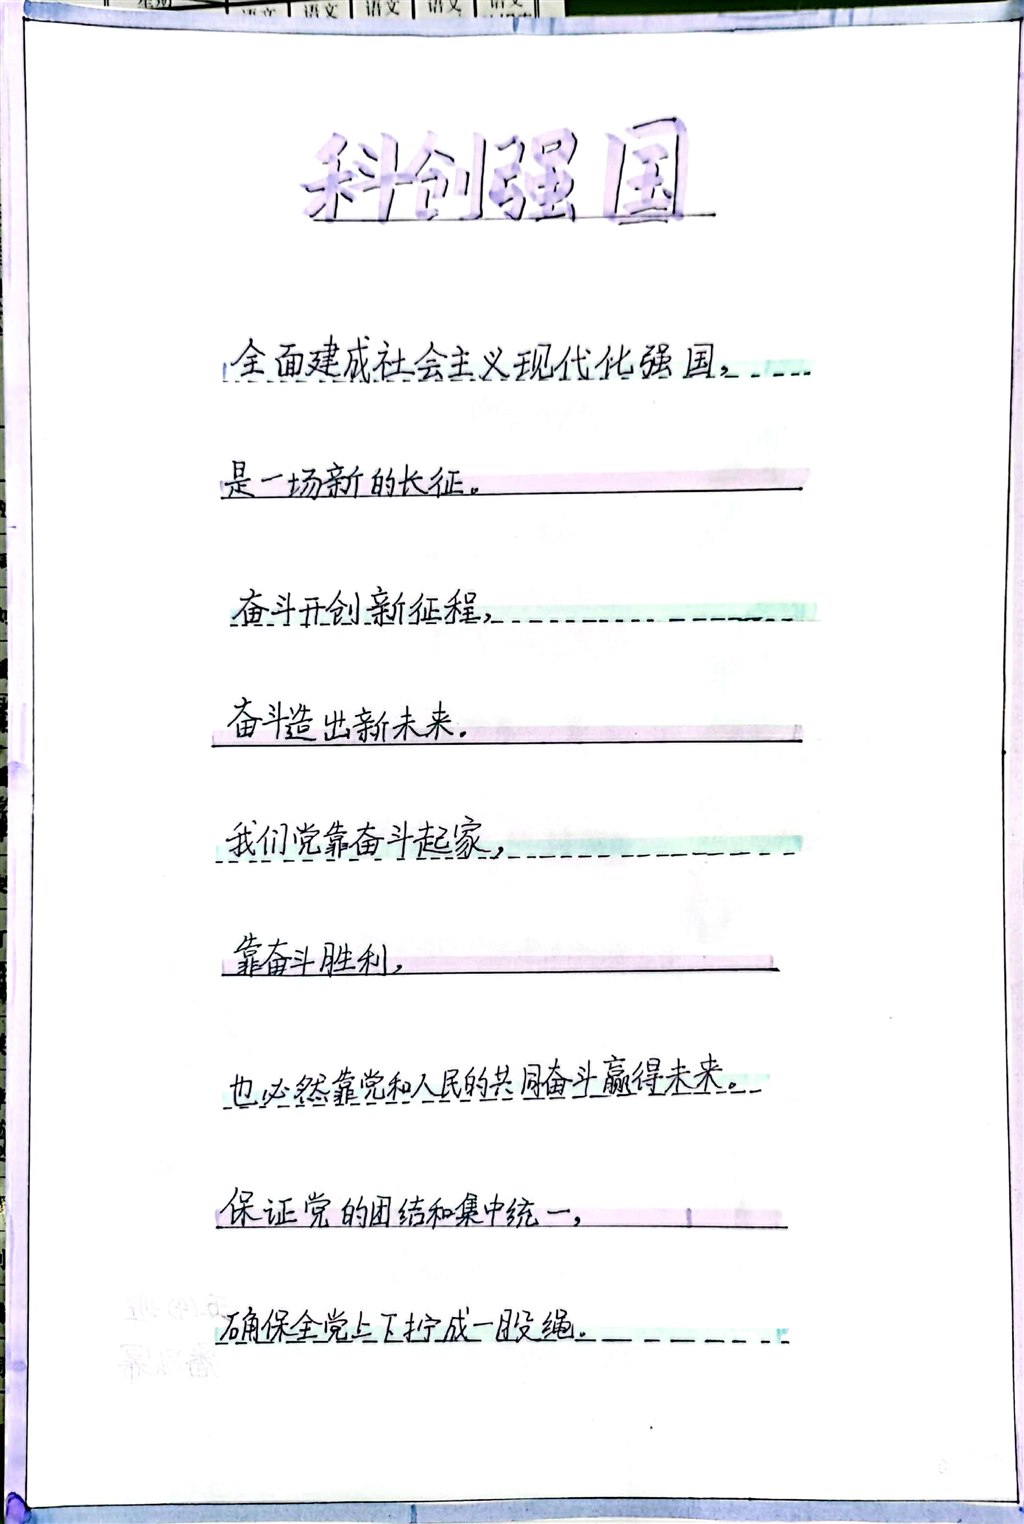 语文 语文 语文 语文
科创强国
全面建成社会主义现代化强国,
是一场新的长征。
奋斗开创新征程,
奋斗造出新未来.
我们党靠奋斗起家,
靠奋斗胜利,
也必然靠党和人民的共同奋斗赢得未来。
保证党的团结和集中统一,
确保全党上下拧成一股绳.